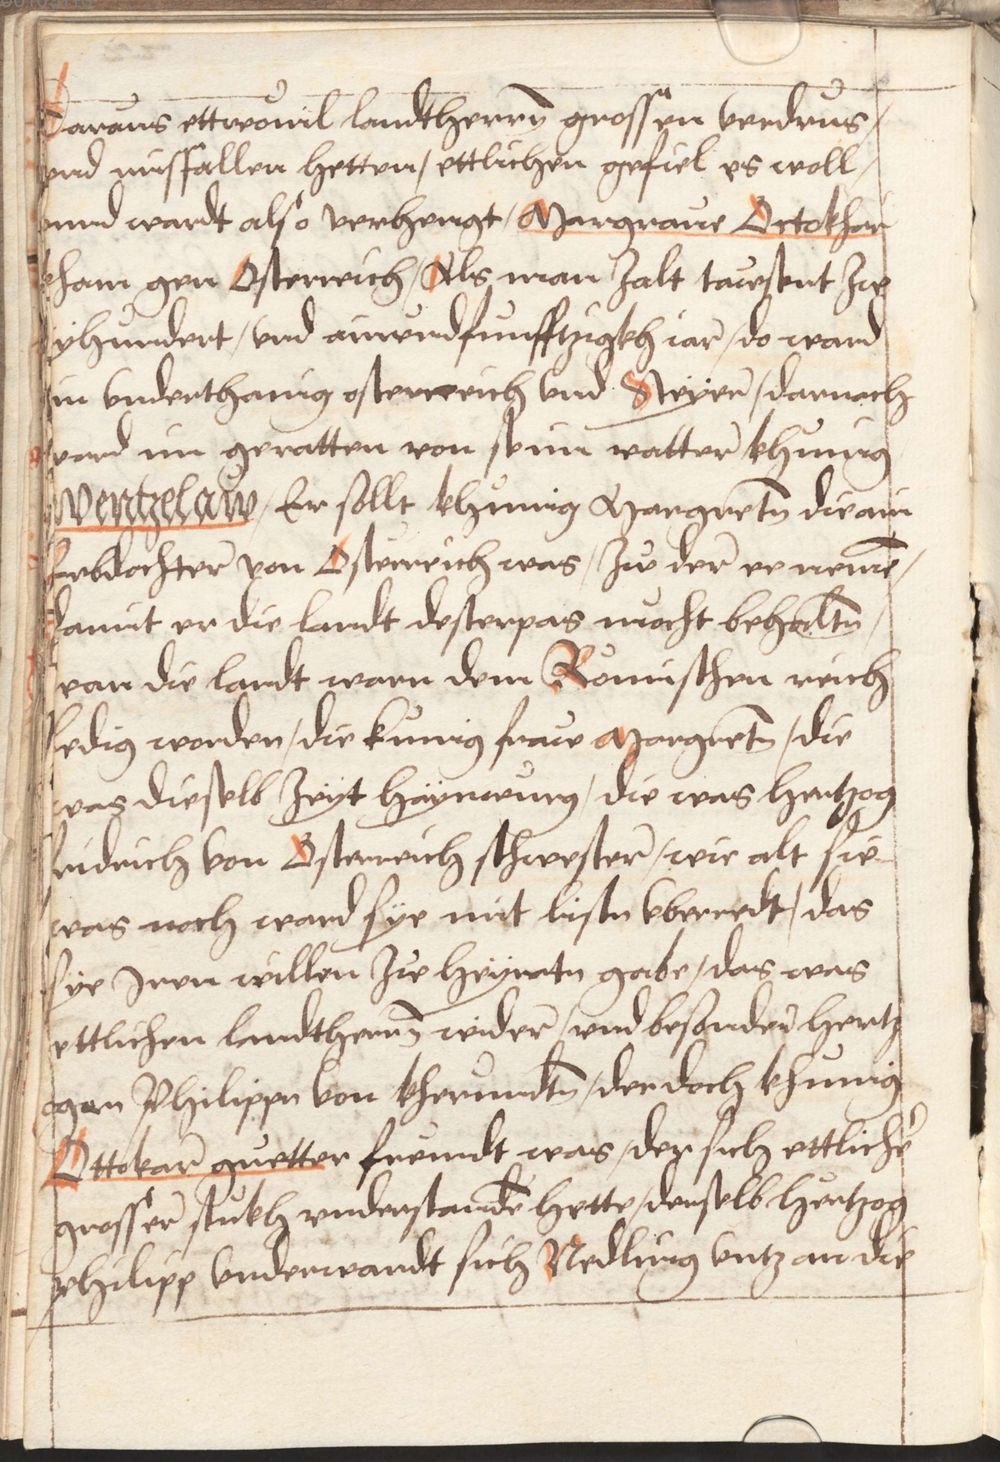 Daraus ettwouil landtherrn grossen verdrus /
vnd missfallen hetten / ettlichen gefiel es woll /
vnnd wardt also verhengt / Margraue Ottokhar
kham gen Osterreich / Als man Zalt tausent Zw
yhundert / vnd ainvndfunfftzigkh iar / do ward
im vnderthanig osterreich vnd Steyer / darnach
ward im geratten von seim vatter khunig
Wentzelaw / Er sollt khunig Margretn die ain
Erbdochter von Osterreich was / Zw der ee neme /
damit er die landt desterpas mocht behaltn /
wan die landt warn dem Romischen reich
ledig worden / die kunig fraw Margretn / die
was dieselb Zeyt Haynwurg / die was hertzog
fridrich von Osterreich schwester / wie alt sie
was noch ward sye mit listn vberredt / das
sye Jren willen Zw heyratn gabe / das was
ettlichen landtherrn wider / vnd besonder hertz
ogen Philippn von kherndtn / der doch khunig
Ottokar guetter freundt was / der sich ettliche
grosser stukh vnderstanden hette / derselb hertzog
philipp vnderwandt sich Nedling vntz an die